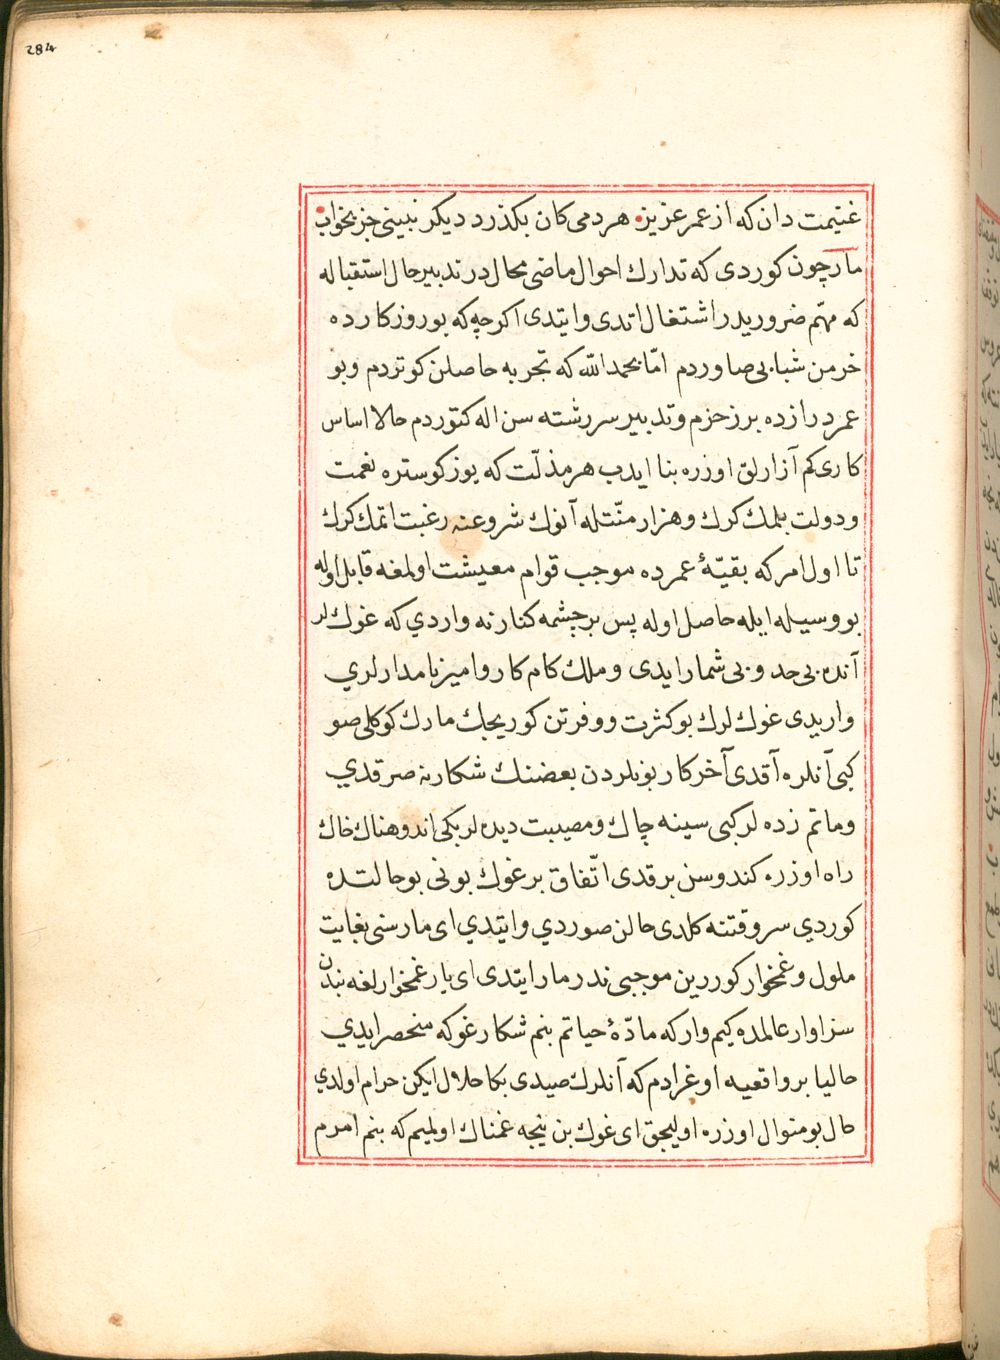 284
غنیمت دان که از عمر عزیز هر دمی کان بکذرد دیکر نبینی جز بخواب
مار چون کوردی که تدارك احوال ماضی محال در تدبیر حال استقباله
که مهمّ ضروریدر اشتغال اتدی و ایتدی اکرچه که بو روزکارده
خرمن شبابی صاوردم امّا بحمد اللّه که تجربه حاصلن کوتردم و بو
عمر درازده برز حزم و تدبیر سررشته سن اله کتوردم حالا اساس
کاری کم آزارلق اوزره بنا ایدب هر مذلّت که یوز کوستره نعمت
و دولت بلمك کرك و هزار منّتله آنوك شروعنه رغبت اتمك کرك
تا اول امر که بقیّۀ عمرده موجب قوام معیشت اولمغه قابل اوله
بو وسیله ایله حاصل اوله پس بر چشمه کنارنه واردي که غوك لر
آنده بی حد و بی شمار ایدی و ملك کام کار و امیر نامدارلري
واریدی غوك لرك بو کثرت و وفرتن کوریجك مارك کوکلی صو
کبی آنلره آقدی آخر کار بونلردن بعضنك شکارنه صرقدي
و ماتم زده لر کبی سینه چاك و مصیبت دیده لر بکی اندوهناك خاك
راه اوزره کندوسن برقدی اتّفاق بر غوك بونی بو حالتده
کوردي سر وقتنه کلدی حالن صوردي و ایتدي ای مار سنی بغایت
ملول و غمخوار کوررین موجبی ندر مار ایتدی ای یار غمخوارلغه بندن
سزاوار عالمده کیم وار که مادّۀ حیاتم بنم شکار غوکه منحصر ایدي
حالیا بر واقعیه اوغرادم که آنلرك صیدی بکا حلال ایکن حرام اولدي
حال بو منوال اوزره اولیجق ای غوك بن نیجه غمناك اولمیم که بنم امرم